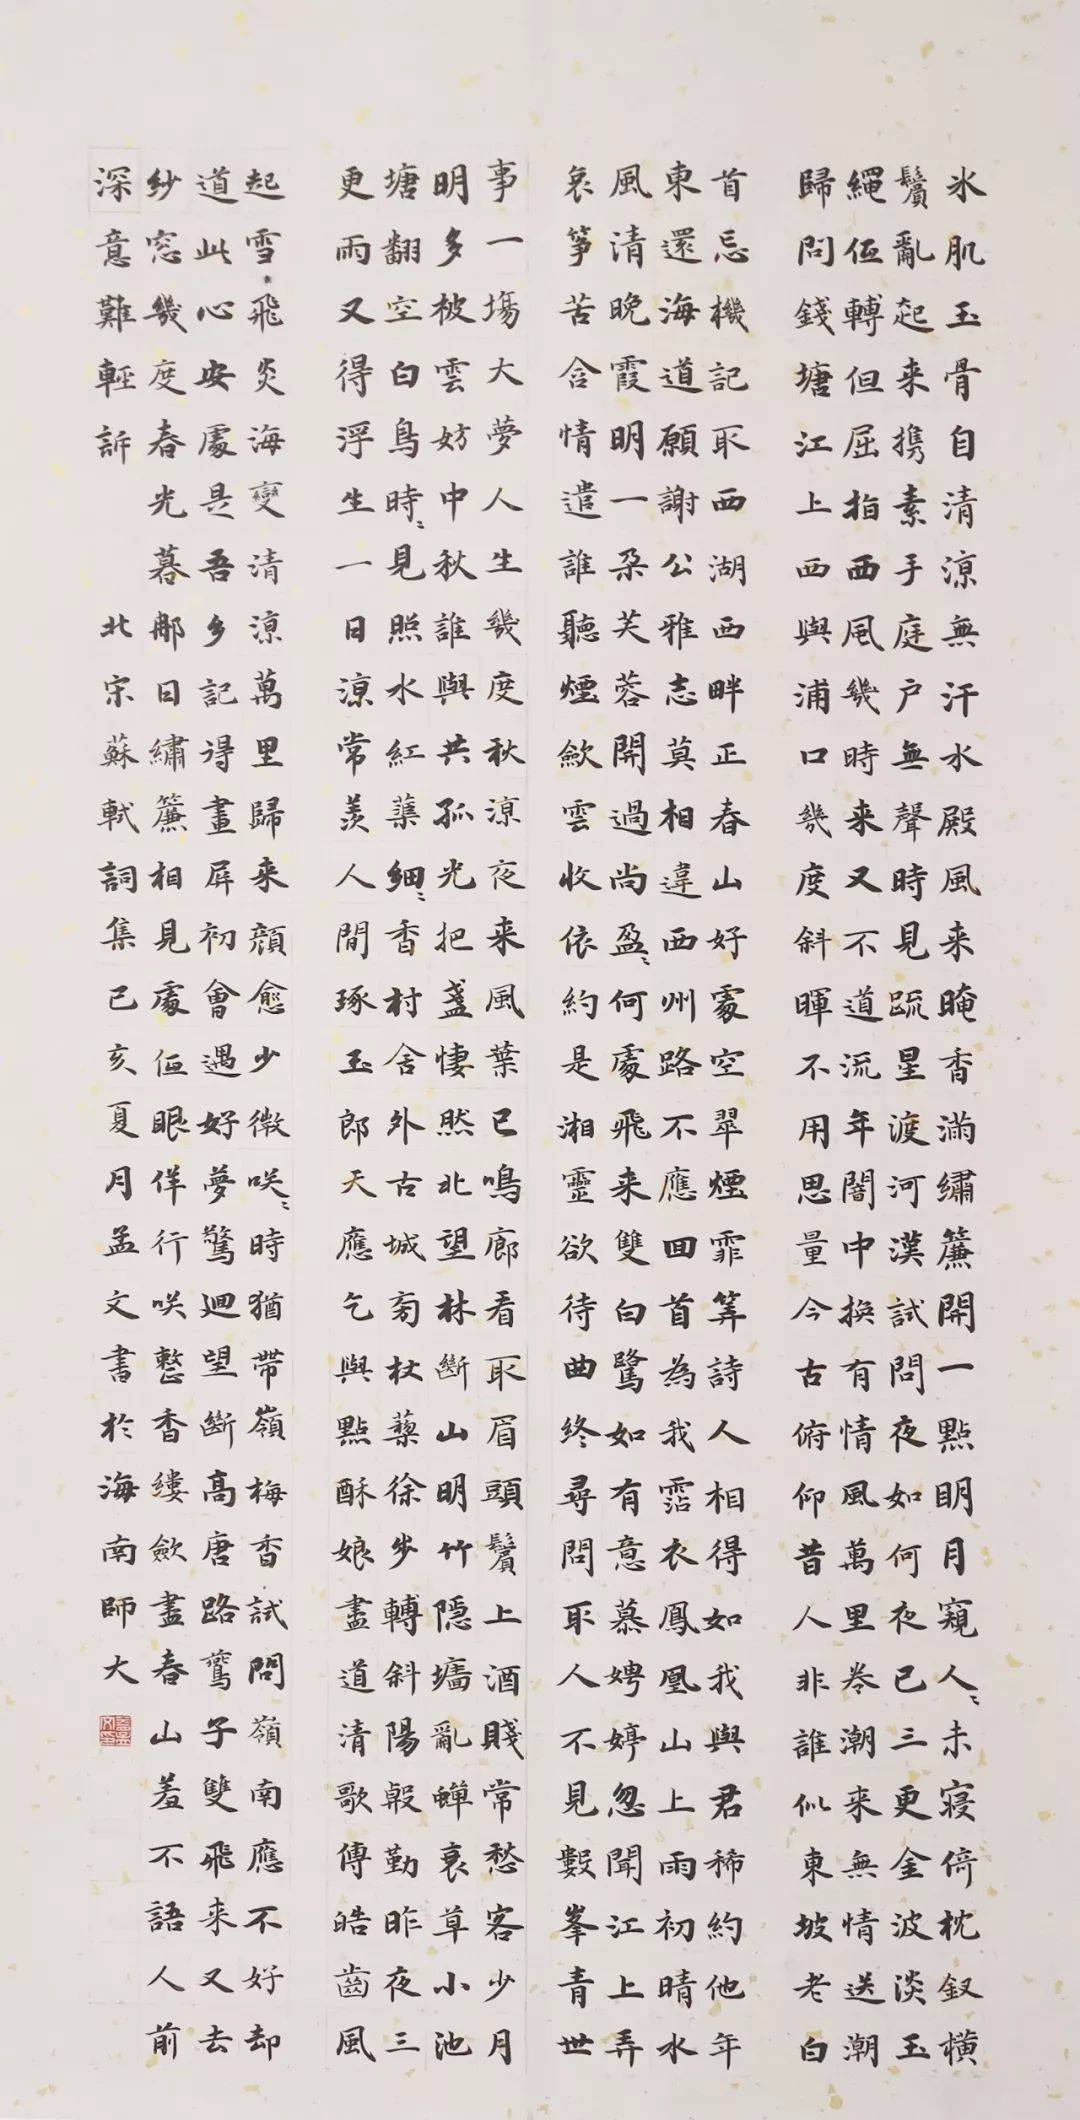 氷肌玉骨自清凉無汗水殿風来晻香滿繡簾開一點明月窺人〻未寢倚枕釵橫
鬢亂起来携素手庭户無聲時見疏星渡河漢試問夜如何夜已三更金波淡玉
繩仾轉但屈指西風幾時来又不道流年闇中換有情風萬里卷潮来無情送潮
歸問錢塘江上西與浦口幾度斜暉不用思量今古俯仰昔人非誰似東坡老白
首忘機記取西湖西畔正春山好處空翠煙霏筭詩人相得如我與君稀約他年
東還海道願謝公雅志莫相違西州路不應回首為我霑衣鳳凰山上雨初晴水
風清晚霞明一朵芙蓉開過尚盈〻何處飛来雙白鷺如有意慕娉婷忽聞江上弄
哀筝苦含情遣誰聽煙斂雲收依約是湘靈欲待曲終尋問取人不見數峯青世
事一塲大夢人生幾度秋凉夜来風葉已鳴廊看取眉頭鬢上酒賤常愁客少月
明多被雲妨中秋誰與共孤光把盞悽然北望林斷山明竹隱墻亂蟬衰草小池
塘翻空白鳥時〻見照水紅蕖細〻香村舍外古城旁杖藜徐步轉斜陽殷勤昨夜三
更雨又得浮生一日凉常羡人間琢玉郎天應乞與點酥娘盡道清歌傳皓齒風
起雪飛炎海變清凉萬里歸来顔愈少微咲〻時猶帶嶺梅香試問嶺南應不好却
道此心安處是吾乡記得畫屏初會遇好夢驚迴望斷高唐路鸞子雙飛来又去
紗窓幾度春光暮那日繡簾相見處仾眼佯行咲整香縷斂盡春山羞不語人前
深意難輕訴 北宋蘇軾詞集己亥夏月孟文書於海南師大